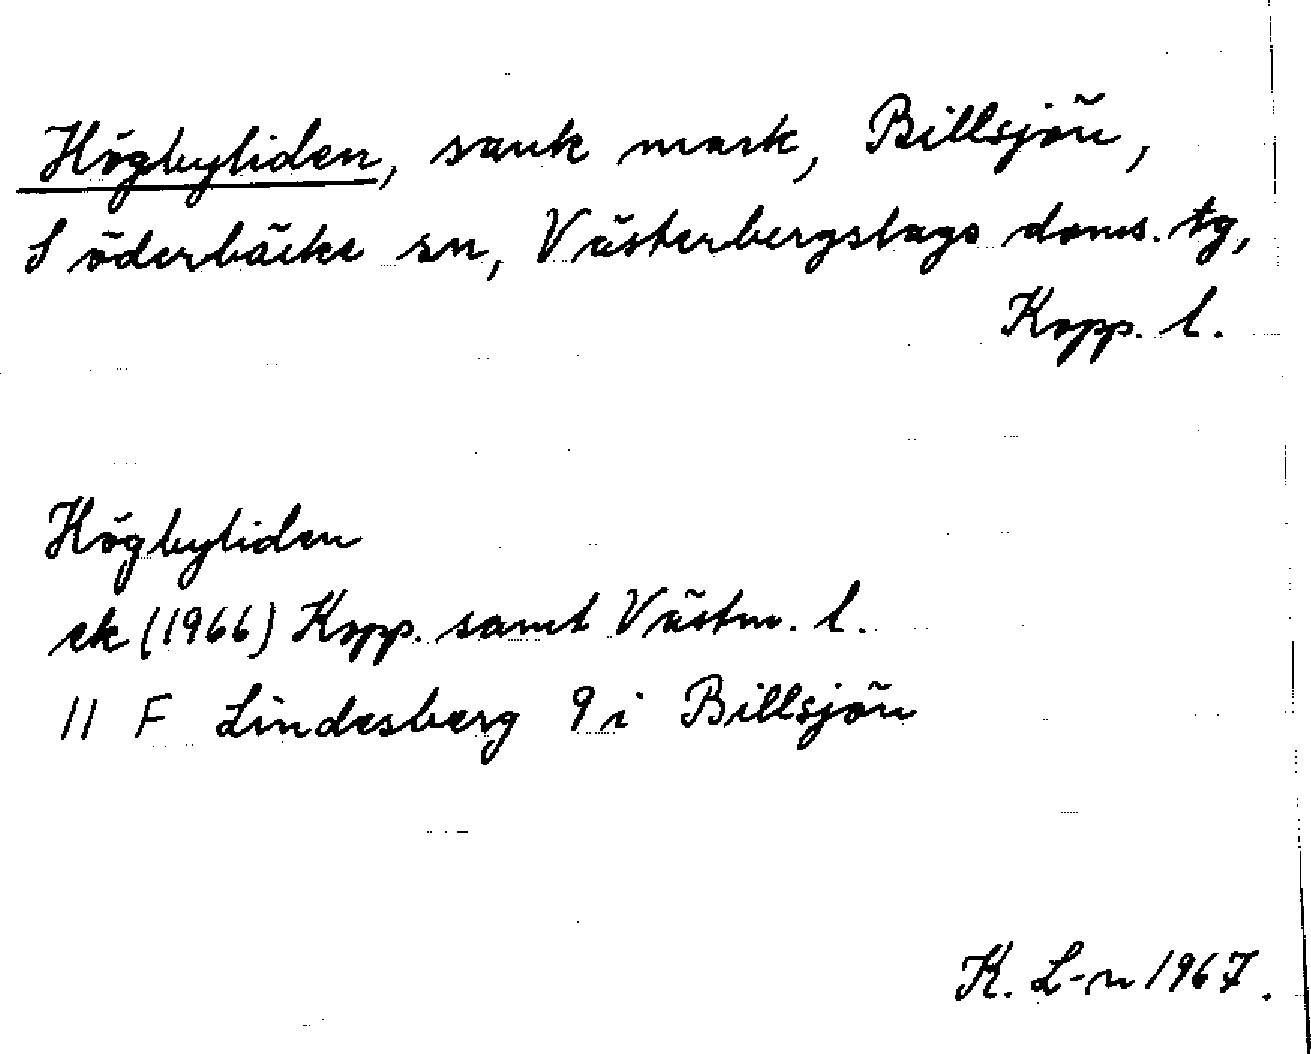 Högbyliden, sank mark, Billsjön,
Söderbäcke sn, Västerbergslags doms. tg,
Kopp. l.
Högbyliden
ek (1966) Kopp. samt Västm. l.
11 F Lindesberg 9 i Billsjön
K. L-n 1967.